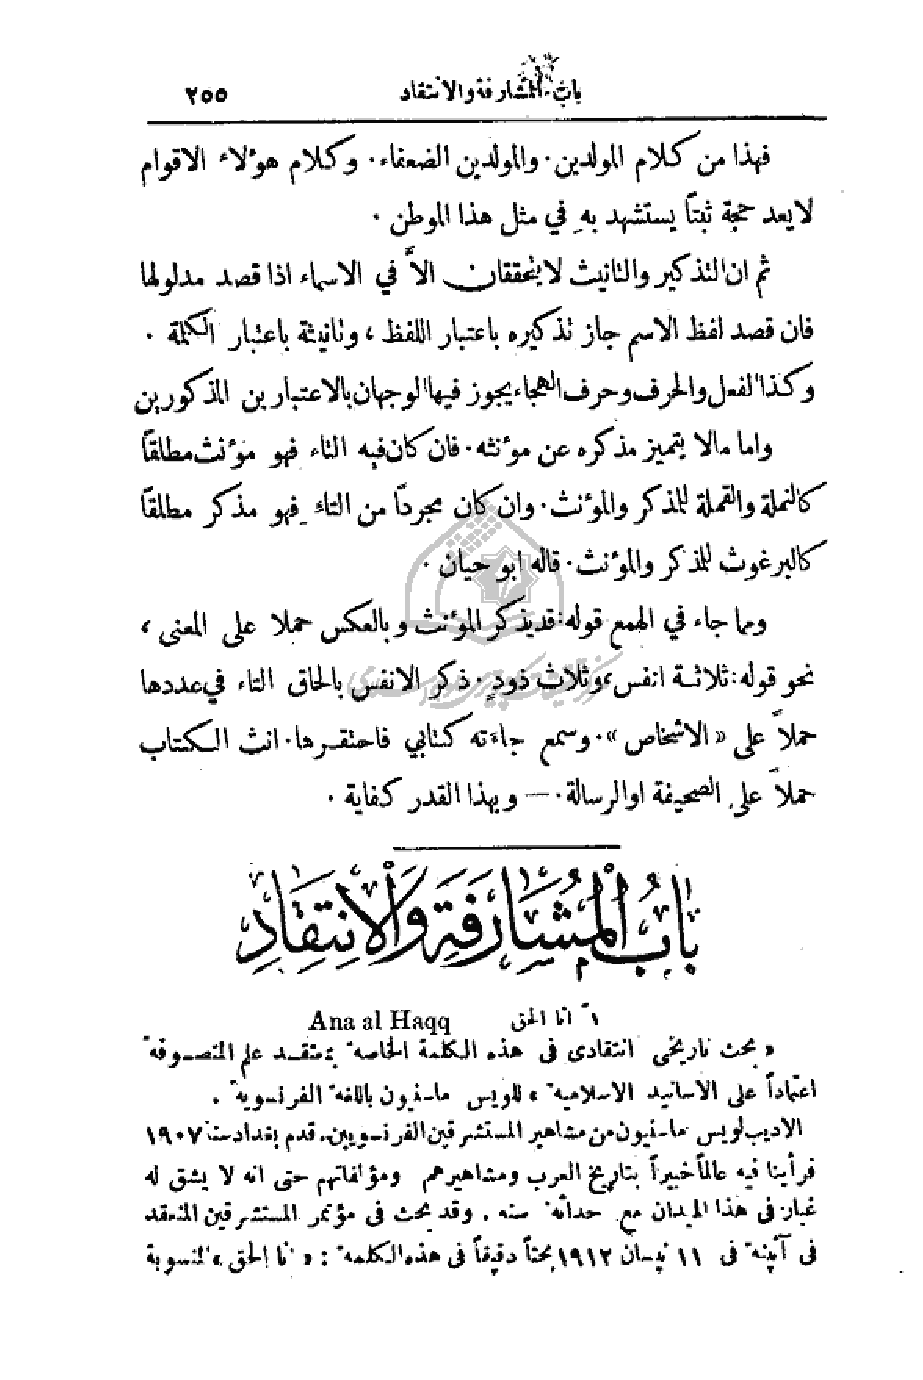 باب المشارفة والانتقاد ٢٥٥
فهذا من كلام المولدين ٠ والمولدين الضعفاء ٠ وكلام هؤلاء الاقوام
لا يعد حجة ثبتاً يستشهد به في مثل هذا الموطن ٠
ثم ان التذكير والتانيث لا يتحققان الاَّ في الاسماء اذا قصد مدلولها
فان قصد لفظ الاسم جاز تذكيره باعتبار اللفظ ، وتانيثة باعتبار الكلمة ٠
وكذا الفعل والحرف وحرف الهجاء يجوز فيها الوجهان بالاعتبارين المذكورين
واما مالا يتميز مذكره عن مؤنثه ٠ فان كان فيه التاء فهو مؤنث مطلقاً
كالنملة والقملة للمذكر والمؤنث ٠ وان كان مجرداً من التاء فهو مذكر مطلقاً
كالبرغوث للمذكر والمؤنث ٠ قاله ابو حيان ٠
ومما جاء في الهمع قوله : قد يذكر المؤنث وبالعكس حملا على المعنى ،
نحو قوله : ثلاثة انفس ، وثلاث ذود ٠ ذكر الانفس بالحاق التاء في عددها
حملاً على « الاشخاص » ٠ وسمع جاءته كتابي فاحتقرها ٠ انث الكتاب
حملاً على الصحيفة او الرسالة ٠ — وبهذا القدر كفاية ٠
بابُ المُشَارَفَةِ وَالاِنتِقَادِ
١ً انا الحق Ana al Haqq
« بحث تاريخي انتقادى فى هذه الكلمة الخاصة بمعتقد علم المتصوفة
اعتماداً على الاسانيد الاسلامية » للويس ماسنيون باللغة الفرنسوية .
الاديب لويس ماسنيون من مشاهير المستشرقين الفرنسويين . قدم بغداد سنة ١٩٠٧
فرأينا فيه عالماً خبيراً بتاريخ العرب ومشاهيرهم ومؤلفاتهم حتى انه لا يشق له
غبار فى هذا الميدان مع حداثة سنه . وقد بحث فى مؤتمر المستشرقين المنعقد
فى آثينة فى ١١ نيسان ١٩١٢ بحثاً دقيقاً فى هذه الكلمة : « انا الحق » المنسوبة